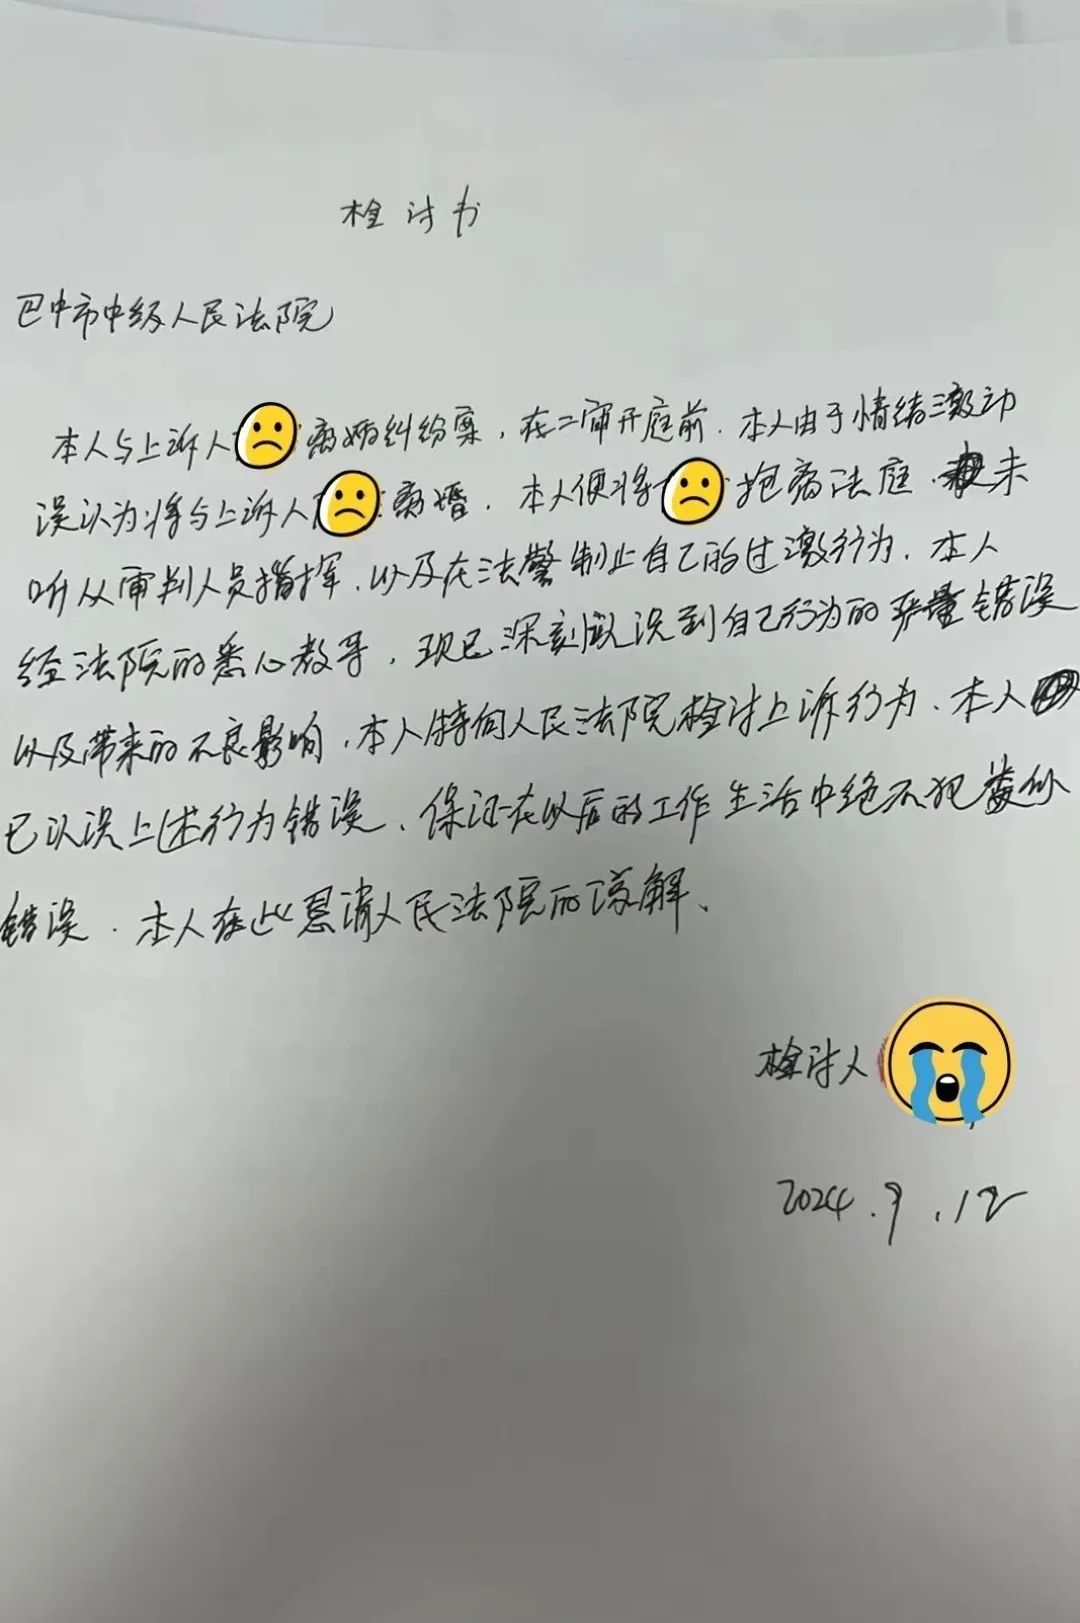 检讨书
巴中市中级人民法院
本人与上诉人 离婚纠纷案，在二审开庭前．本人由于情绪激动
误认为将与上诉人 离婚．本人便将 抱离法庭．未
听从审判人员指挥．以及在法警制止自己的过激行为．本人
经法院的悉心教导，现已深刻认识到自己行为的严重错误
以及带来的不良影响．本人特向人民法院检讨上诉行为．本人
已认识上述行为错误．保证在以后的工作生活中绝不犯类似
错误．本人在此恳请人民法院的谅解、
检讨人
2024.9.12